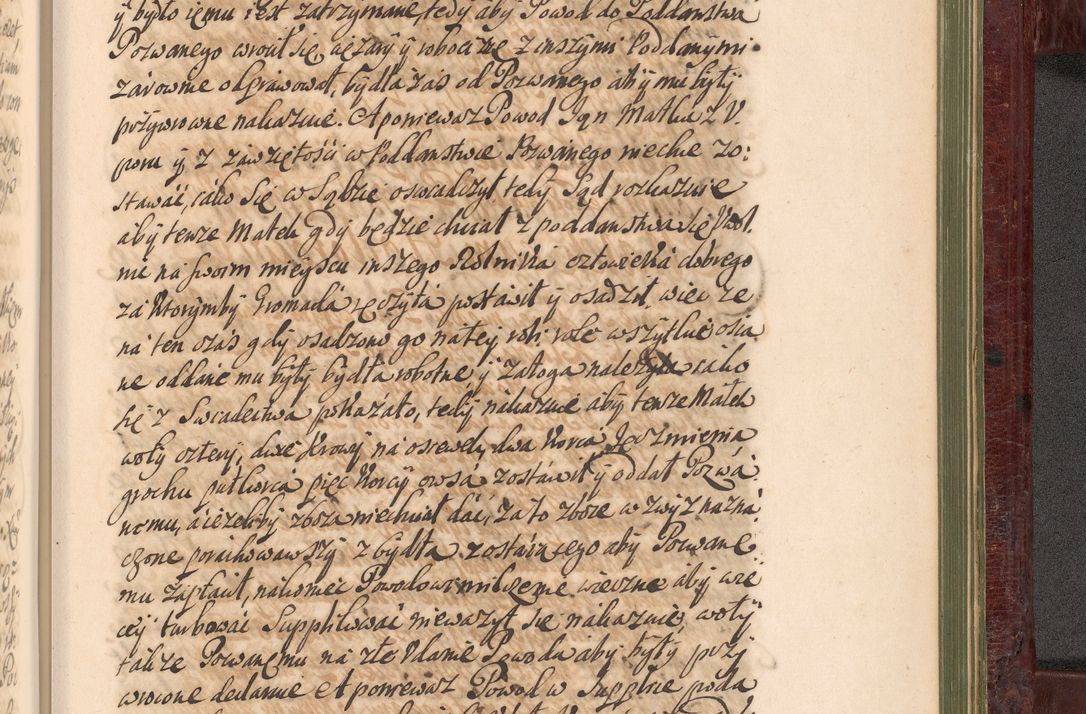 y było iemu iest zatrzymane, tedy aby Powod do Poddanstwa
Pozwanego wrocił się, ciężary y robociznę z inszymi Poddanymi
zarownie odprawował, bydła zas od Pozwanego aby mu były
przywrocone nakazuie. A poniewasz Powod Jan Matka z V
poru y z zawziętości w Poddanstwie Pozwanego niechce zo:
stawać, iako się w Sądzie oswiadczył tedy Sąd roskazuie
aby tenze Matek gdy będzie chciał z poddanstwa się Vwol
nic na swoim mieyscu inszego Rolnika człowieka dobrego
za ktorymby Gromada ręczyła postawił y osadził, wiec ze
na ten czas gdy osadzono go na tey roli, role wszytkie osia
ne oddane mu były bydła robotne y załoga należyta iako
się z Swiadectwa pokazało, tedy nakazuie aby tenze Matek
woły cztery, dwie krowy na osiewek, dwa korca Jęczmienia
grochu pułkorca pięc korcy owsa zostawił y oddał Pozwa:
nemu, a iezeliby zboza niechciał dać, za to zboze w zwyz nazna
czone porachowawszy z bydła zostaiącego aby Pozwane:
mu zapłacił, nakoniec Powodowi milczenie wieczne aby wie
cey turbować Supplikować niewazył się nakazuie, woły
takze Pozwanemu na złe Vdanie Powoda aby były przy
wrocone deklaruie A poniewasz Powod w Supplice poda